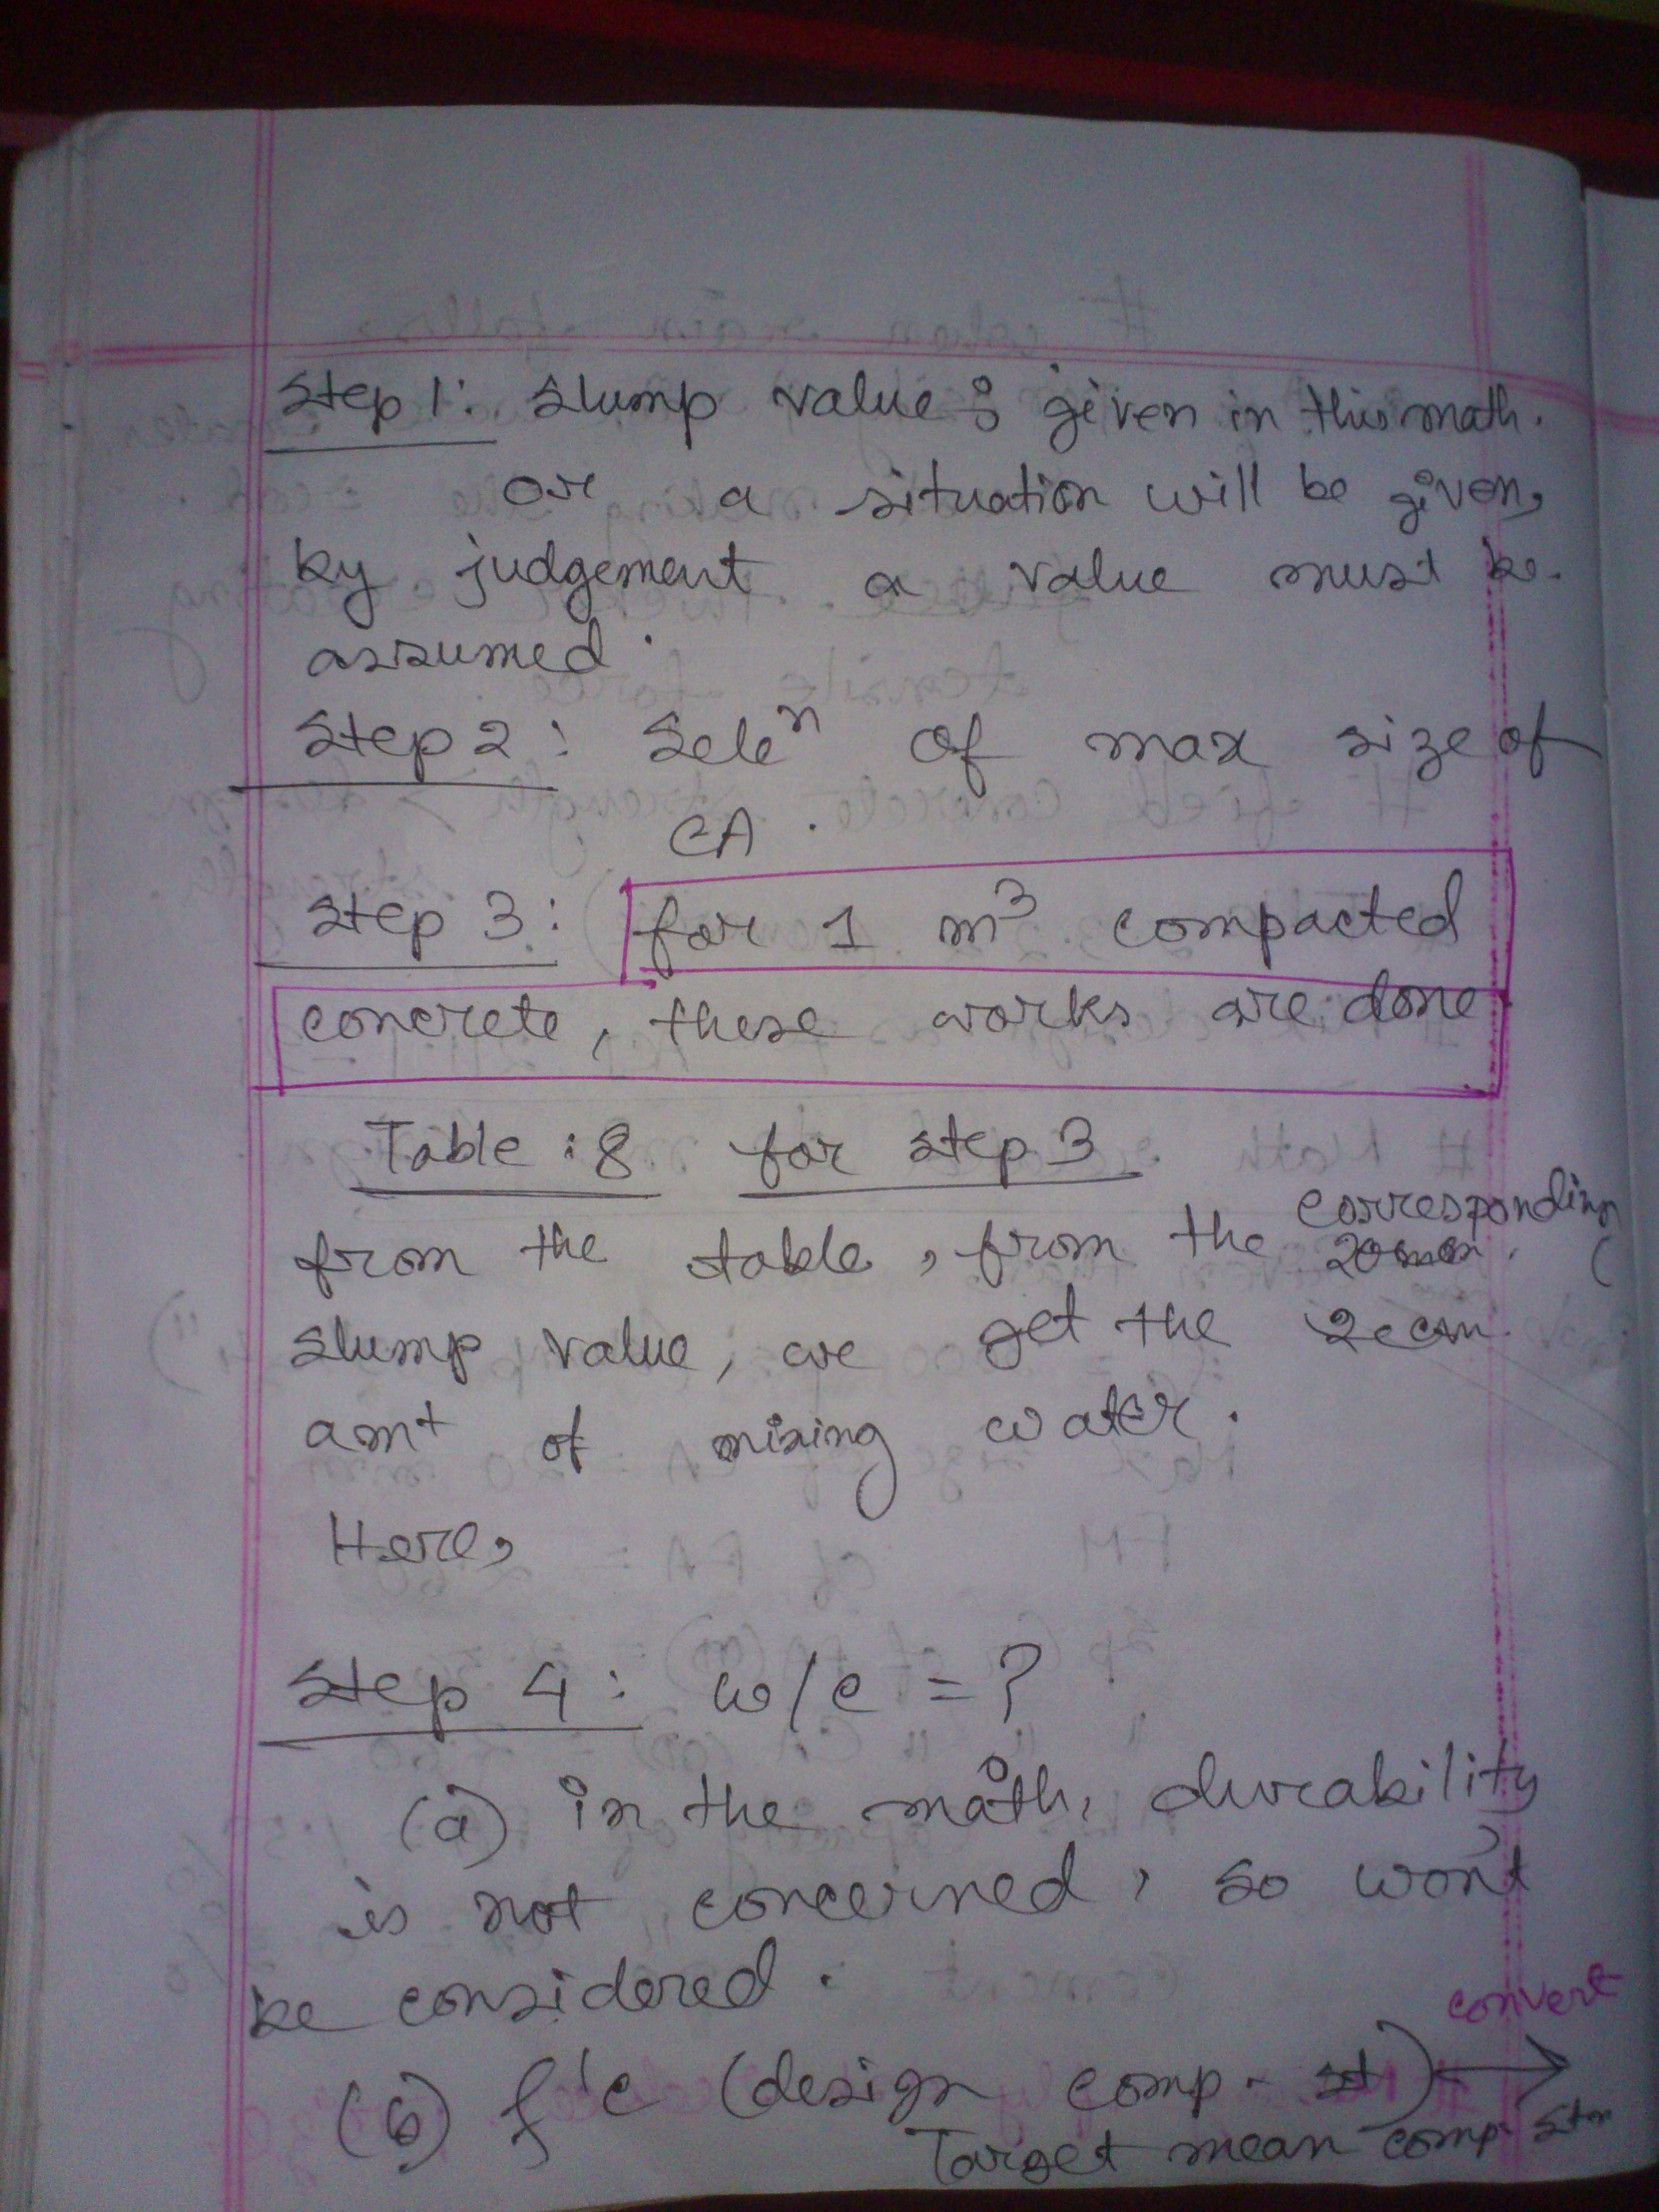 Step 1: Slump value : given in this math.
or a situation will be given,
by judgement a value must be
assumed.
Step 2: Seleⁿ of max size of
CA.
Step 3: for 1 m³ compacted
concrete, these works are done
Table : 8 for step 3.
from the table, from the corresponding
20 mm
slump value, we get the
amt of mixing water.
Here,
Step 4: w/c = ?
(a) in the math, durability
is not concerned, so won't
be considered.
convert
(b) f'c (design comp. st) →
Target mean comp. stn